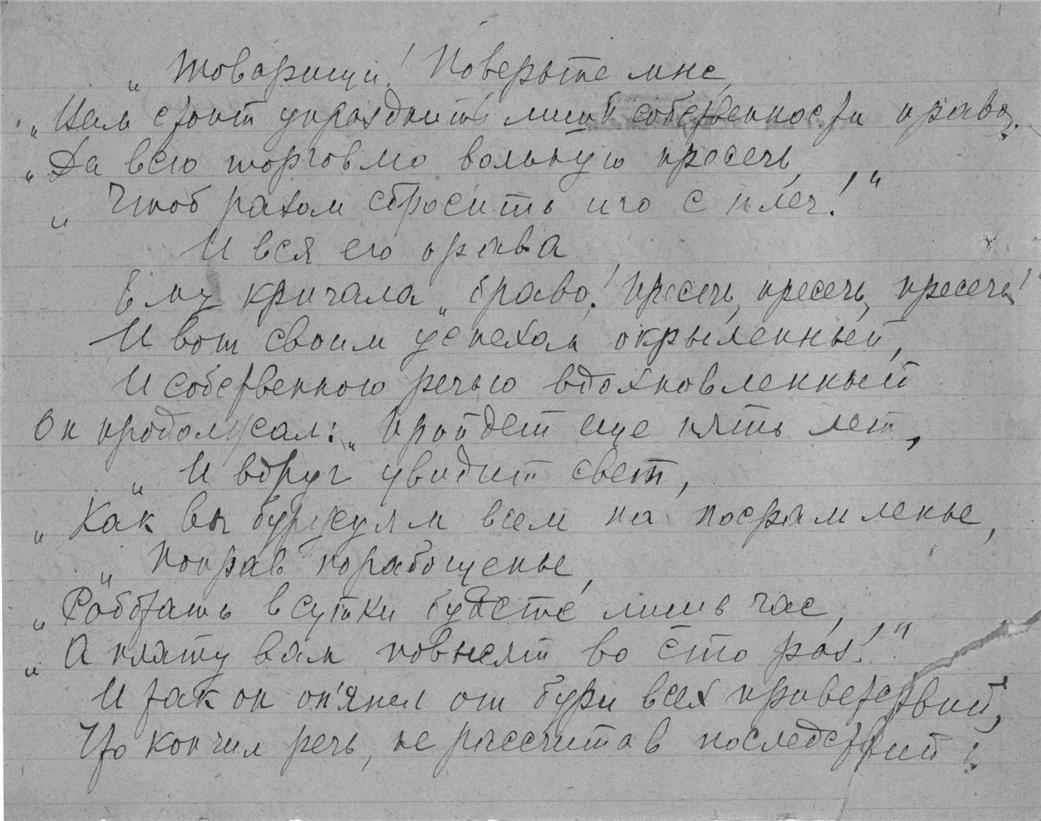 „Товарищи! Поверьте мне,
„Нам стоит упразднить лишь собственности право,
„Да всю торговлю вольную пресечь,
„Чтоб разом сбросить иго с плеч!"
И вся его орава
Ему кричала „браво! Пресечь, пресечь, пресечь!"
И вот своим успехом окрыленный,
И собственною речью вдохновленный
Он продолжал: „Пройдет еще пять лет,
„И вдруг увидит свет,
„Как вы буржуям всем на посрамленье,
„Поправ порабощенье,
„Работать в сутки будете лишь час,
„А плату вам повысят во сто раз!"
И так он оп'янел от бури всех приветствий,
Что кончил речь, не рассчитав последствий: